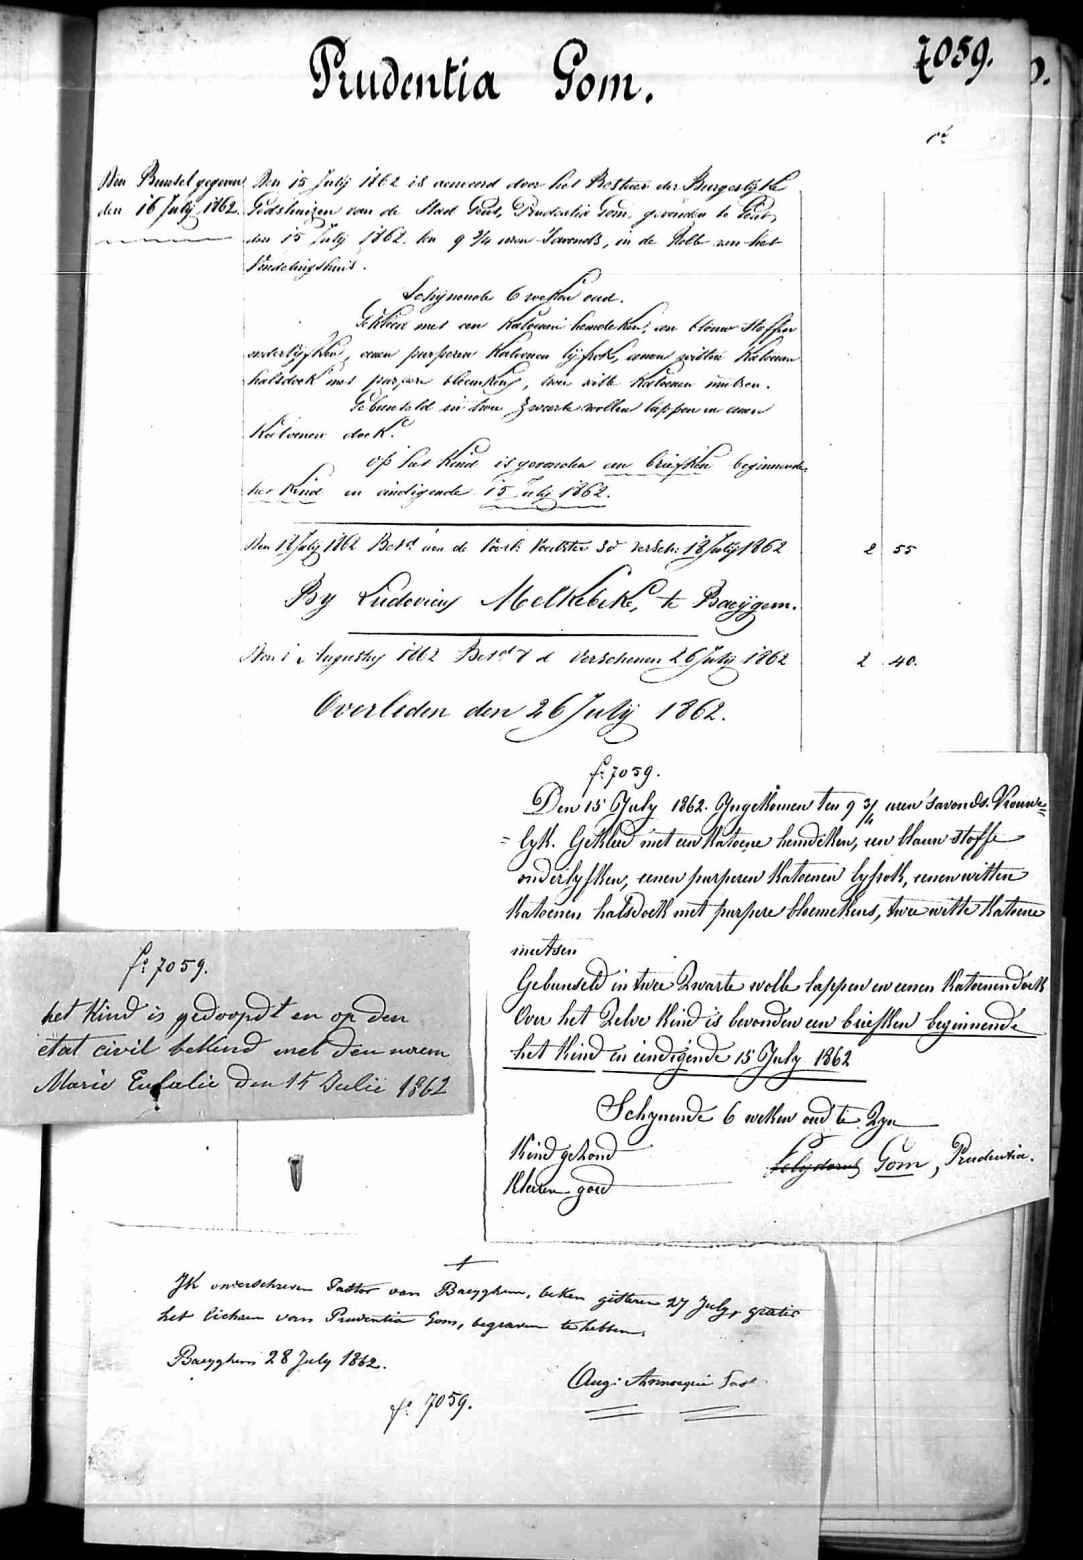 Prudentia Gom.
7059.
Den Bundel gegeven
den 16 July 1862.
Den 15 July 1862 is aenveerd door het Bestuer der Burgerlyke
Godshuizen van de Stad Gent, Prudentia Gom, gevonden te Gent,
den 15 July 1862. ten 9 3/4 uren Savonds, in de Rolle van het
Vondelingshuis.
Schynende 6 weken oud.
Gekleed met een katoenen hemdeken, een blauw stoffen
onderlyfken, eenen purperen katoenen lyfrok, eenen witten katoenen
halsdoek met purpere bloemkens, twee witte katoenen mutsen.
Gebundeld in twee zwarte wollen lappen en eenen
katoenen doek.
Op het kind is gevonden een briefken beginnende
het kind en eindigende 15 July 1862.
Den 18 July 1862 Betd aen de Voorl: Voedster 3d versch: 18 July 1862
2 55
By Ludovicus Melkebeke, te Baeygem.
Den 1 Augusty 1862 Betd 8 d Verschenen 26 July 1862
2 40.
Overleden den 26 July 1862.
fo 7059.
Den 15 July 1862. Ingekomen ten 9 3/4 uren 'savonds. Vrouwe=
=lyk. Gekleed met een katoene hemdeken, een blauw stoffe
onderlyfken, eenen purperen katoenen lyfrok, eenen witten
katoenen halsdoek met purpere bloemekens, twee witte katoene
meutsen
Gebunseld in twee Zwarte wolle lappen en eenen katoenen doek
Over het Zelve kind is bevonden een briefken beginnende
het kind en eindigende 15 July 1862
Schynende 6 weken oud te Zyn
Kind gezond
Gom, Prudentia.
Kleeren goed
fo 7059.
het kind is gedoopdt en op den
etat civil bekend met den naem
Marie Eufalie den 15 Julie 1862
Ik onderschreven Pastor van Baeyghem, beken gisteren 27 July, gratis
het lichaem van Prudentia Gom, begraven te hebben,
Baeyghem 28 July 1862.
Aug:
fo 7059.